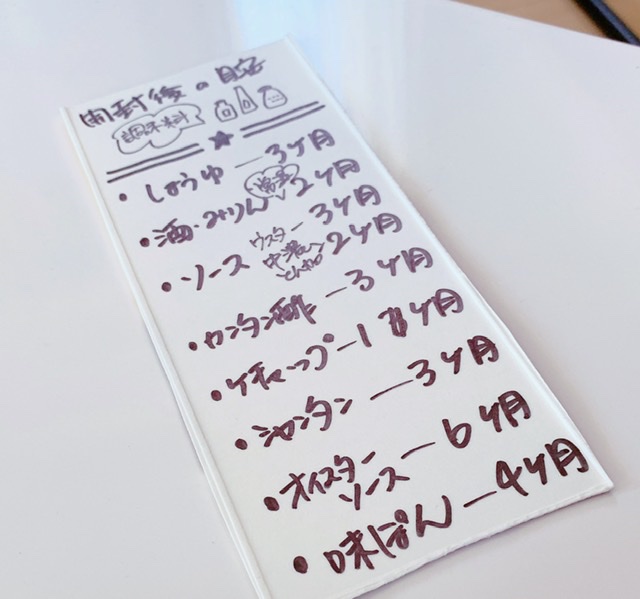 開封後の目安
調味料
・しょうゆ — 3ヶ月
・酒・みりん 常温 2ヶ月
・ソース ウスター — 3ヶ月
中濃 とんかつ 2ヶ月
・カンタン酢 — 3ヶ月
・ケチャップ — 1ヶ月
・シャンタン — 3ヶ月
・オイスターソース — 6ヶ月
・味ぽん — 4ヶ月